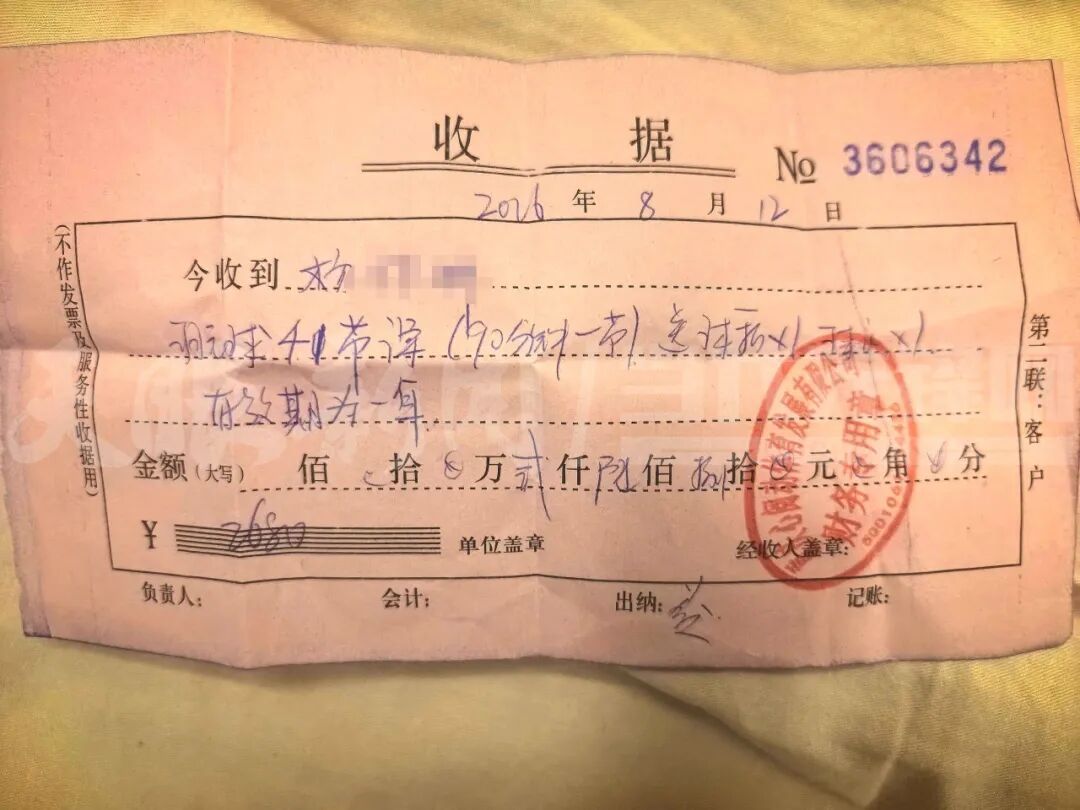 收 据
No 3606342
2026 年 8 月 12 日
今收到
羽毛球 41 节课 (90分钟一节) 送球拍x1 x1
有效期为一年
金额(大写) 佰 拾 万 贰 仟 陆 佰 捌 拾 元 角 分
¥ 2680 单位盖章 经收人盖章:
负责人: 会计: 出纳: 记账:
(不作发票及服务性收据用)
第二联:客户
体育发展有限公司
财务专用章